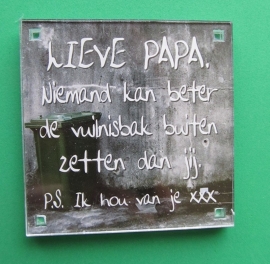 LIEVE PAPA,
Niemand kan beter
de vuilnisbak buiten
zetten dan jij.
P.S. Ik hou van je xxx